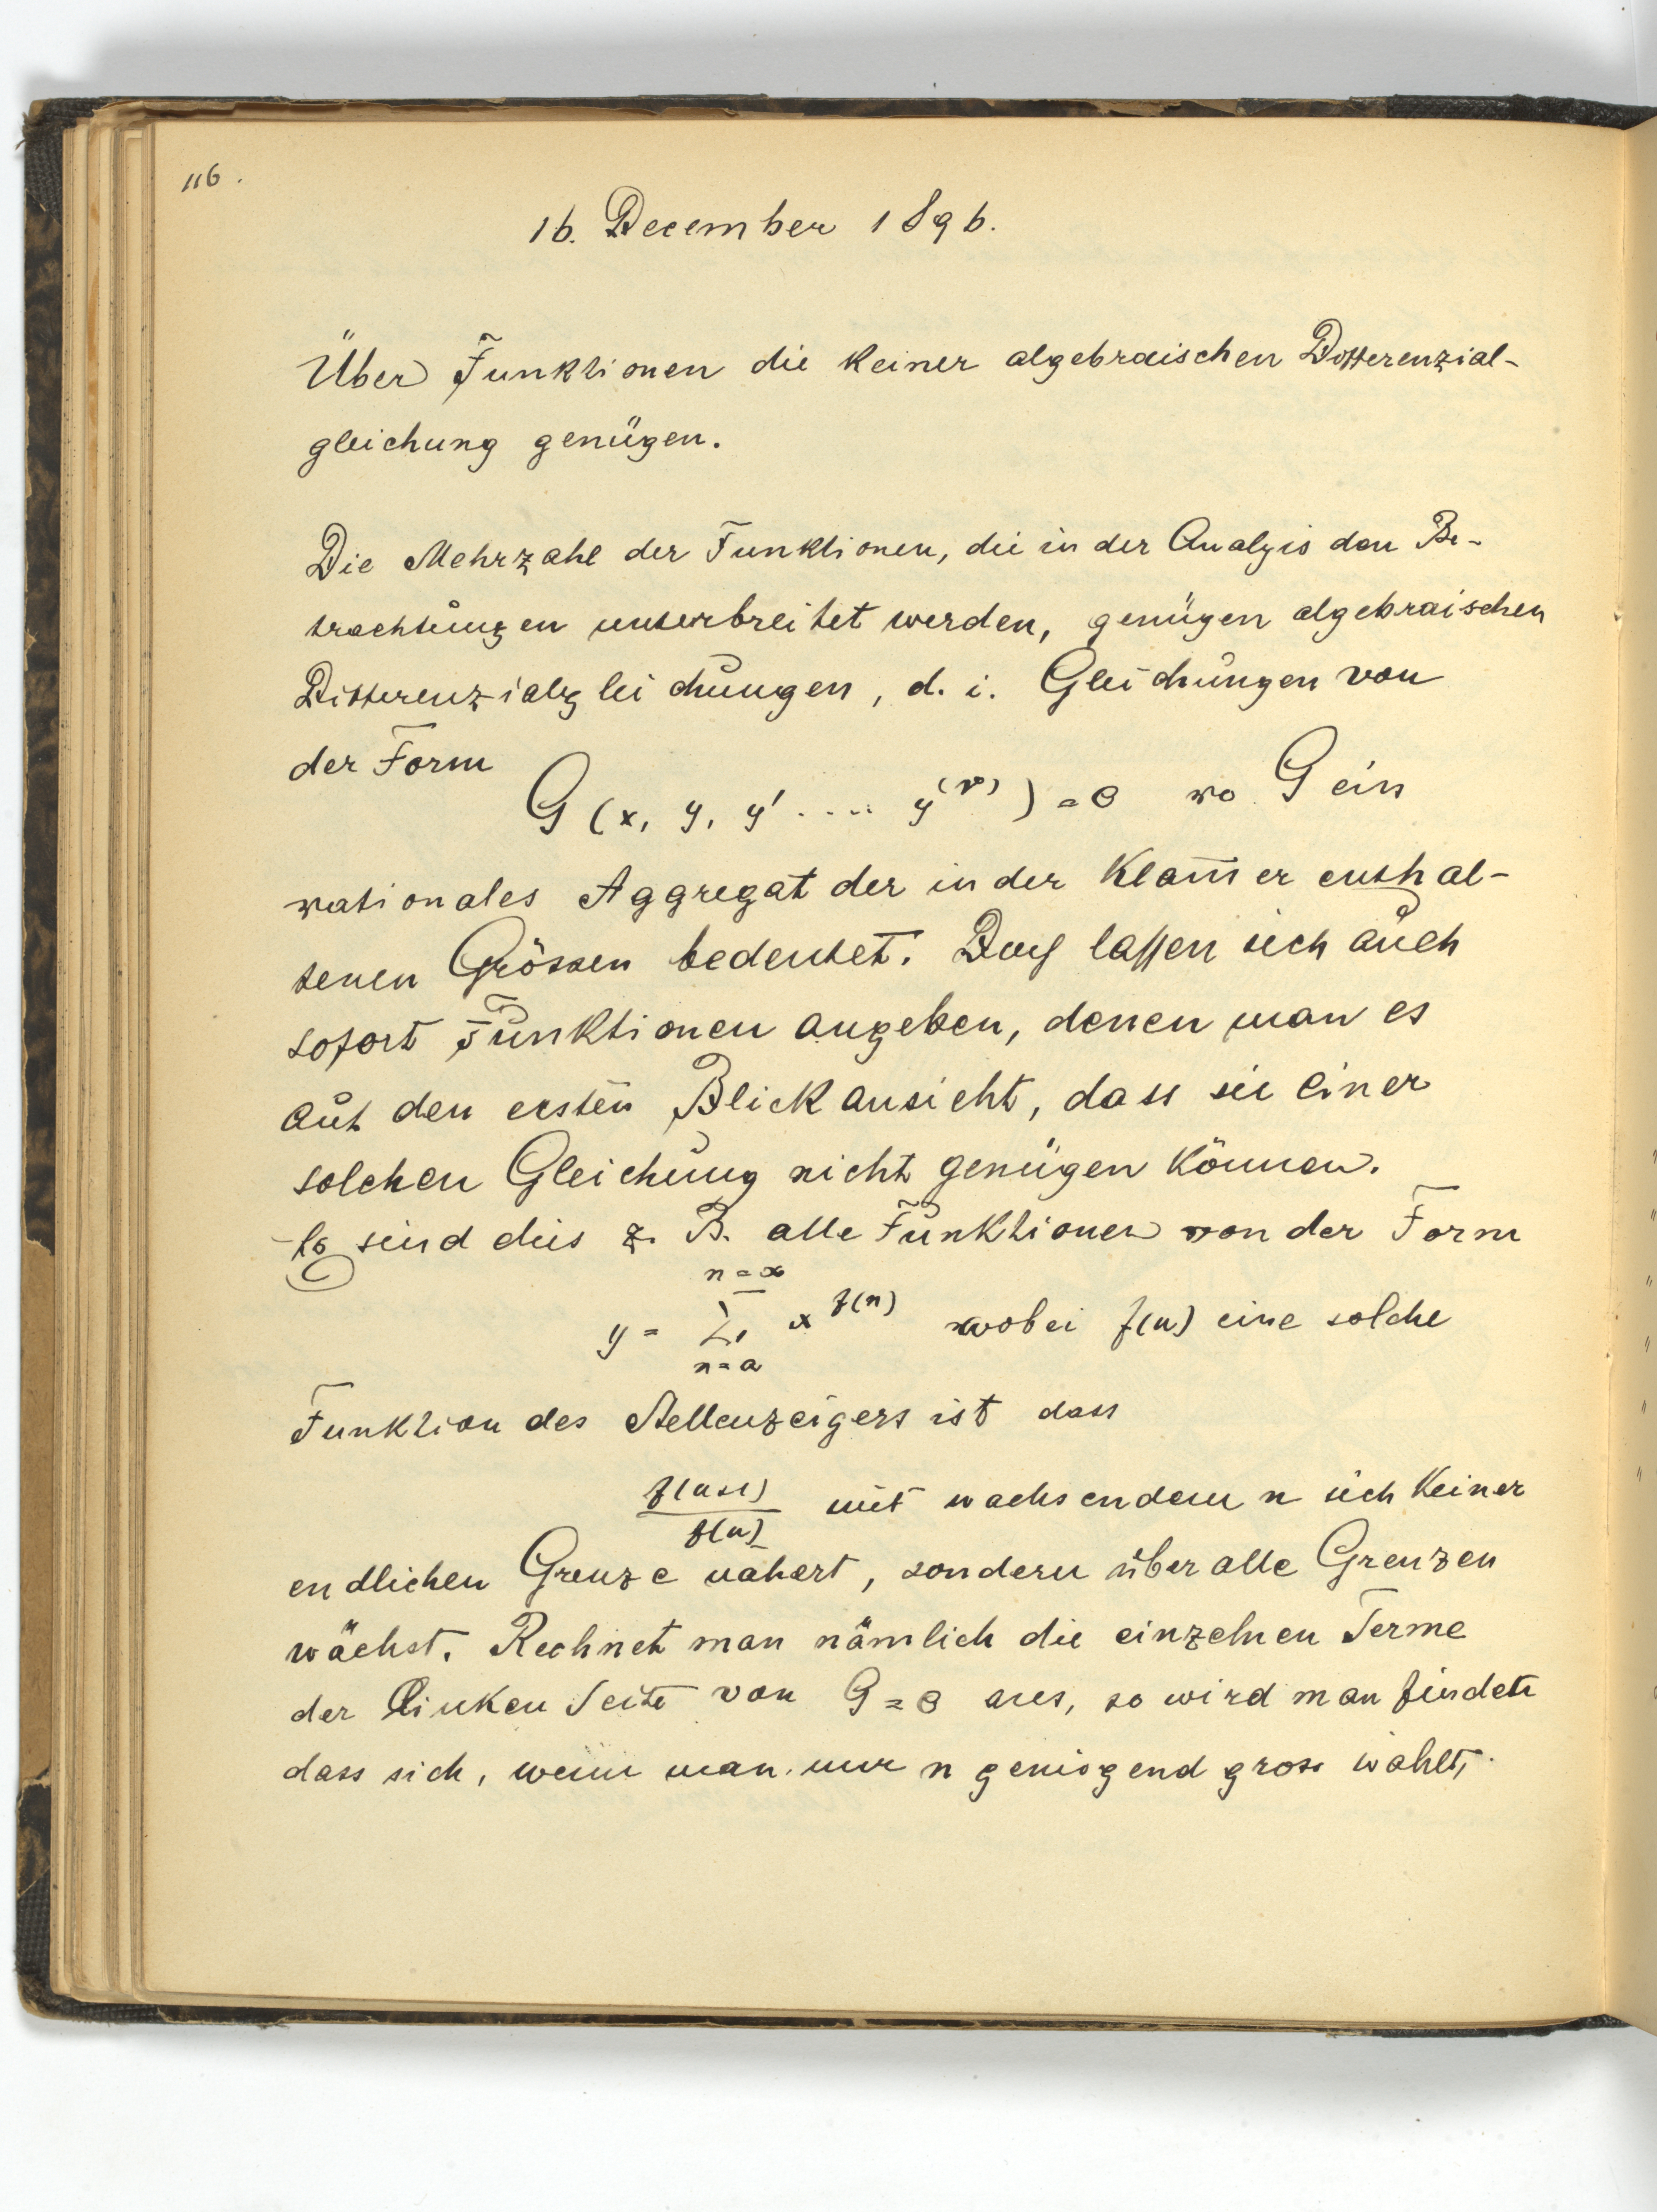 116.
16. December 1896.
Über Funktionen die keiner algebraischen Differenzial-
gleichung genügen.
Die Mehrzahl der Funktionen, die in der Analyis den Be-
trachtungen unterbreitet werden, genügen algebraischen
Differenzialgleichungen, d. i. Gleichungen von
der Form
G (x, y, y' .... y^(ν)) = 0 wo G ein
rationales Aggregat der in der Klam̅er enthal-
tenen Grössen bedeutet. Doch lassen sich auch
sofort Funktionen angeben, denen man es
auf den ersten Blick ansieht, dass sie einer
solchen Gleichung nicht genügen können.
Es sind dies z. B. alle Funktionen von der Form
n = ∞
y = Σ x^f(n) wobei f(n) eine solche
n = a
Funktion des Stellenzeigers ist dass
f(n+1)/f(n) mit wachsendem n sich keiner
endlichen Grenze nähert, sondern über alle Grenzen
wächst. Rechnet man nämlich die einzelnen Terme
der linken Seite von G = 0 aus, so wird man finden
dass sich, wenn man nur n genügend gross wählt,